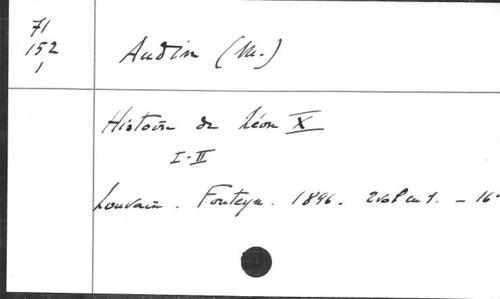 71
152
1
Audin (M.)
Histoire de Léon X
I-II
Louvain. Fonteyn. 1896. 2 vol en 1. - 16-